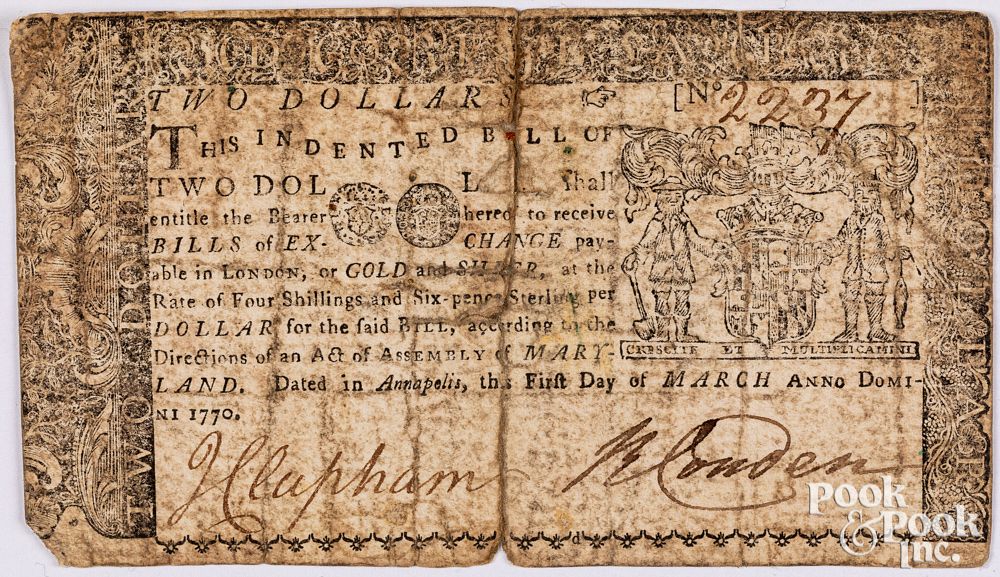 TWO DOLLARS ☞ [No 2237 ]
THIS INDENTED BILL OF
TWO DOL L shall
entitle the Bearer hereof to receive
BILLS of EX- CHANGE pay-
able in LONDON, or GOLD and SILVER, at the
Rate of Four Shillings and Six-pence Sterling per
DOLLAR for the ſaid BILL, according to the
Directions of an Act of ASSEMBLY of MARY-
LAND. Dated in Annapolis, this First Day of MARCH ANNO DOMI-
NI 1770.
CRESCITE ET MULTIPLICAMINI
J Clapham
R Couden
TWO DOLLARS
POOK
& POOK
Inc.